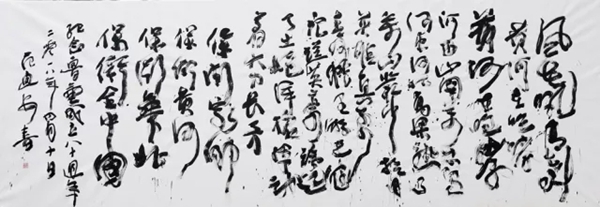 风在吼马在叫
黄河在咆哮
黄河在咆哮
河西山岗万丈高
河东河北高粱熟了
万山丛中抗日
英雄真不少
青纱帐里游击健
儿逞英豪端起
了土枪洋枪挥动
着大刀长矛
保衛家鄉
保衛黄河
保衛華北
保衛全中國
纪念鲁藝成立八十週年
二零一八年四月十日